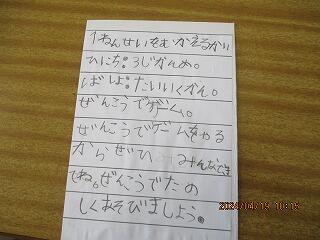 1ねんせいをむかえるかい
ひにち:3じかんめ。
ばしょ:たいいくかん。
ぜんこうでゲーム。
ぜんこうでゲームをやる
からぜひ みんなできてね。ぜんこうでたの
しくあそびましょう。
2024/04/19 10:15